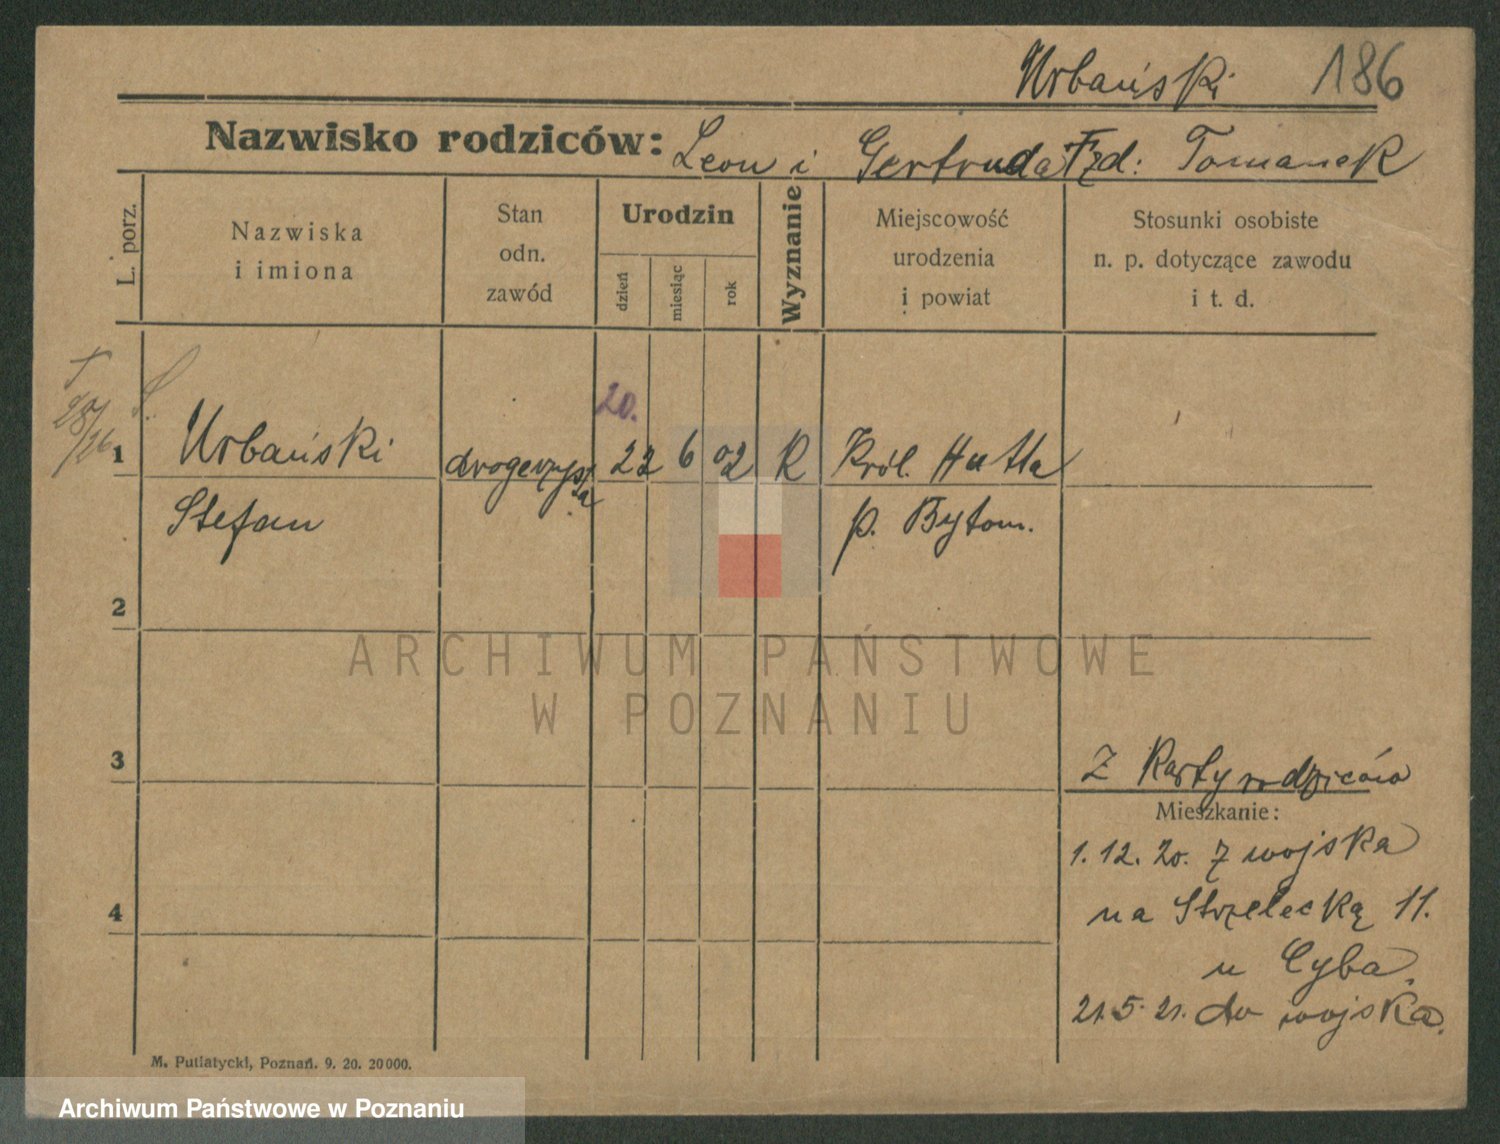 Urbański 186
Nazwisko rodziców: Leon i Gertruda Tomanek
L. porz.
Nazwiska
i imiona
Stan
odn.
zawód
Urodzin
dzień
miesiąc
rok
Wyznanie
Miejscowość
urodzenia
i powiat
Stosunki osobiste
n. p. dotyczące zawodu
i t. d.
20.
1 Urbański drogerzysta 22 6 02 R Król. Hutta
Stefan p. Bytom.
2
3
Z Karty rodziców
Mieszkanie:
1. 12. 20. z wojska
4
na Strzelecką 11.
u Cyba.
21. 5. 21. do wojska.
M. Putiatycki, Poznań. 9. 20. 20 000.
ARCHIWUM PAŃSTWOWE
W POZNANIU
Archiwum Państwowe w Poznaniu